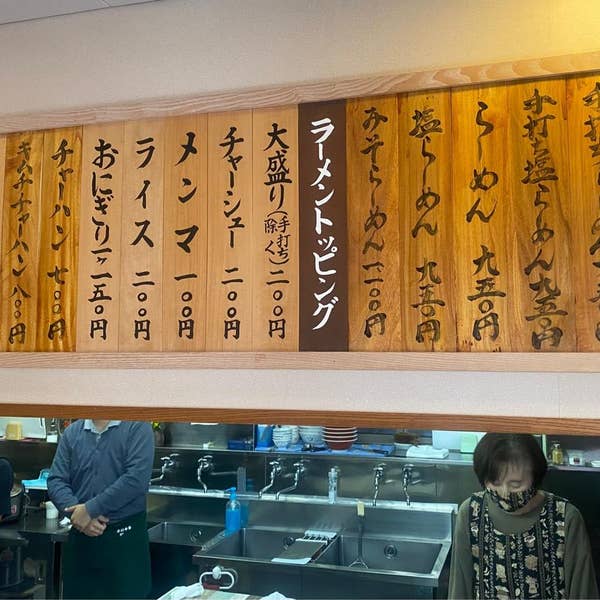 手打ち塩らーめん九五〇円
らーめん 九五〇円
塩らーめん 九五〇円
みそらーめん 一、一〇〇円
ラーメントッピング
大盛り(手打ち除く)二〇〇円
チャーシュー 二〇〇円
メンマ 一〇〇円
ライス 二〇〇円
おにぎり一ヶ一五〇円
チャーハン 七〇〇円
キムチチャーハン 八〇〇円